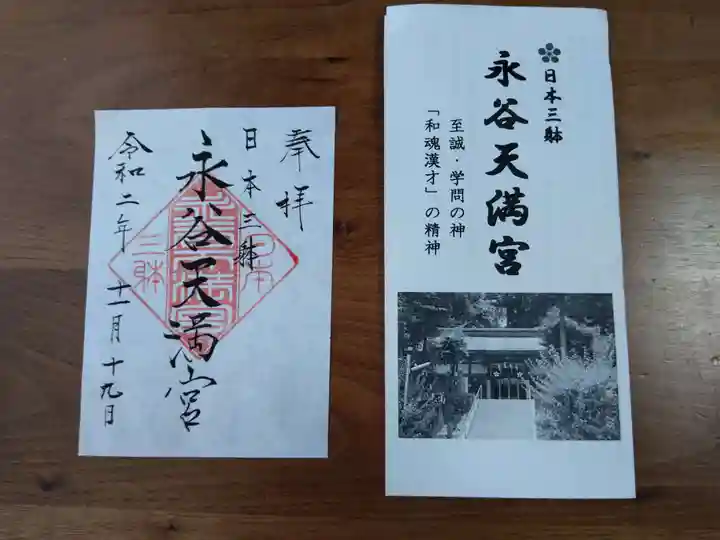 奉拝
日本三躰
永谷天満宮
令和二年 十一月 十九日
日本
三躰
日本三躰
永谷天満宮
至誠・学問の神
「和魂漢才」の精神